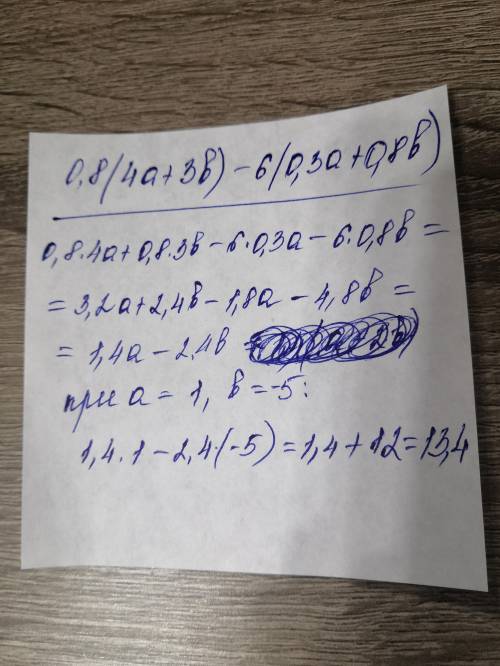 0,8(4a+3в)-6(0,3a+0,8в)
0,8·4a+0,8·3в-6·0,3a-6·0,8в=
=3,2a+2,4в-1,8a-4,8в=
=1,4a-2,4в
при a=1, в=-5:
1,4·1-2,4·(-5)=1,4+12=13,4